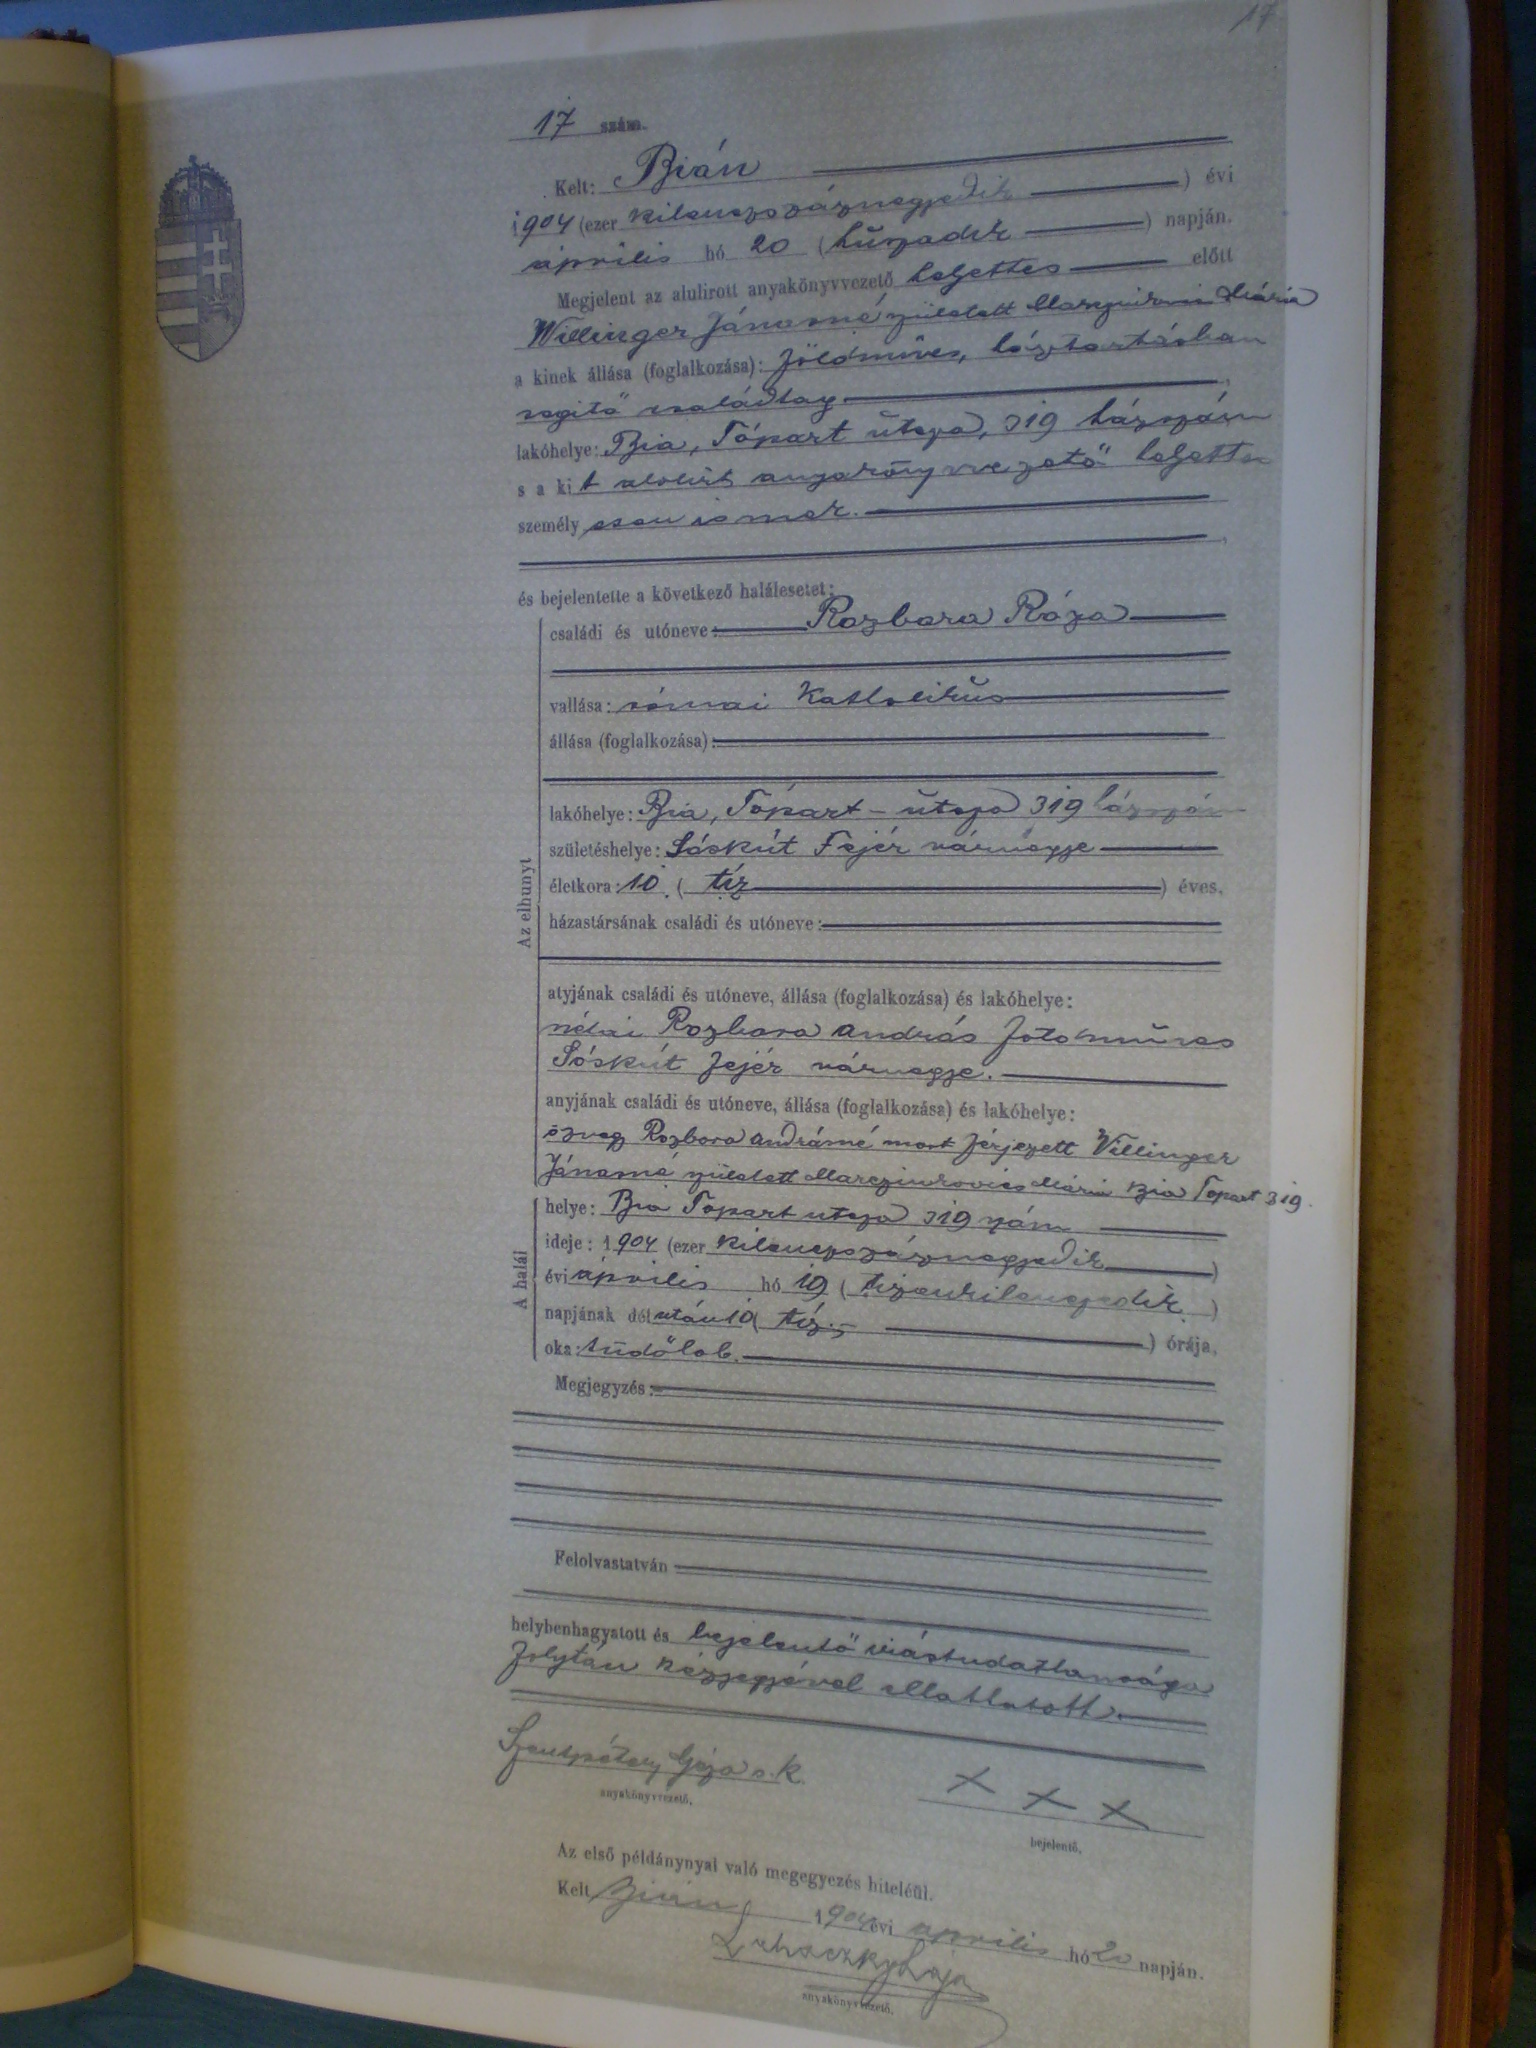 17
17 szám.
Kelt: Bián
1904 (ezer kilenczszáznegyedik) évi
április hó 20 (huszadik) napján.
Megjelent az alulirott anyakönyvvezető helyettes előtt
Willinger Jánosné született Marczinkovics Mária
a kinek állása (foglalkozása): földmüves, háztartásban
segitő családtag
lakóhelye: Bia, Tópart utcza, 319 házszám
s a kit alolirt anyakönyvvezető helyettes
személyesen ismer.
és bejelentette a következő halálesetet:
családi és utóneve: Rozbora Róza
vallása: római katholikus
állása (foglalkozása):
lakóhelye: Bia, Tópart-utcza 319 házszám
születéshelye: Sóskút Fejér vármegye
életkora: 10 (tíz) éves,
Az elhunyt
házastársának családi és utóneve:
atyjának családi és utóneve, állása (foglalkozása) és lakóhelye:
néhai Rozbora András földmüves
Sóskút Fejér vármegye.
anyjának családi és utóneve, állása (foglalkozása) és lakóhelye:
özvegy Rozbora Andrásné most férjezett Willinger
Jánosné született Marczinkovics Mária Bia Tópart 319.
A halál
helye: Bia Tópart utcza 319 szám
ideje: 1904 (ezer kilenczszáznegyedik)
évi április hó 19 (tizenkilenczedik)
napjának délután 10 (tíz) órája,
oka: tüdőlob.
Megjegyzés:
Felolvastatván
helybenhagyatott és bejelentő irástudatlansága
folytán kézjegyével elláttatott.
Szentpétery Géza s.k.
anyakönyvvezető,
x x x
bejelentő,
Az első példánynyal való megegyezés hiteléül.
Kelt Bián, 1904 évi április hó 20 napján.
anyakönyvvezető.